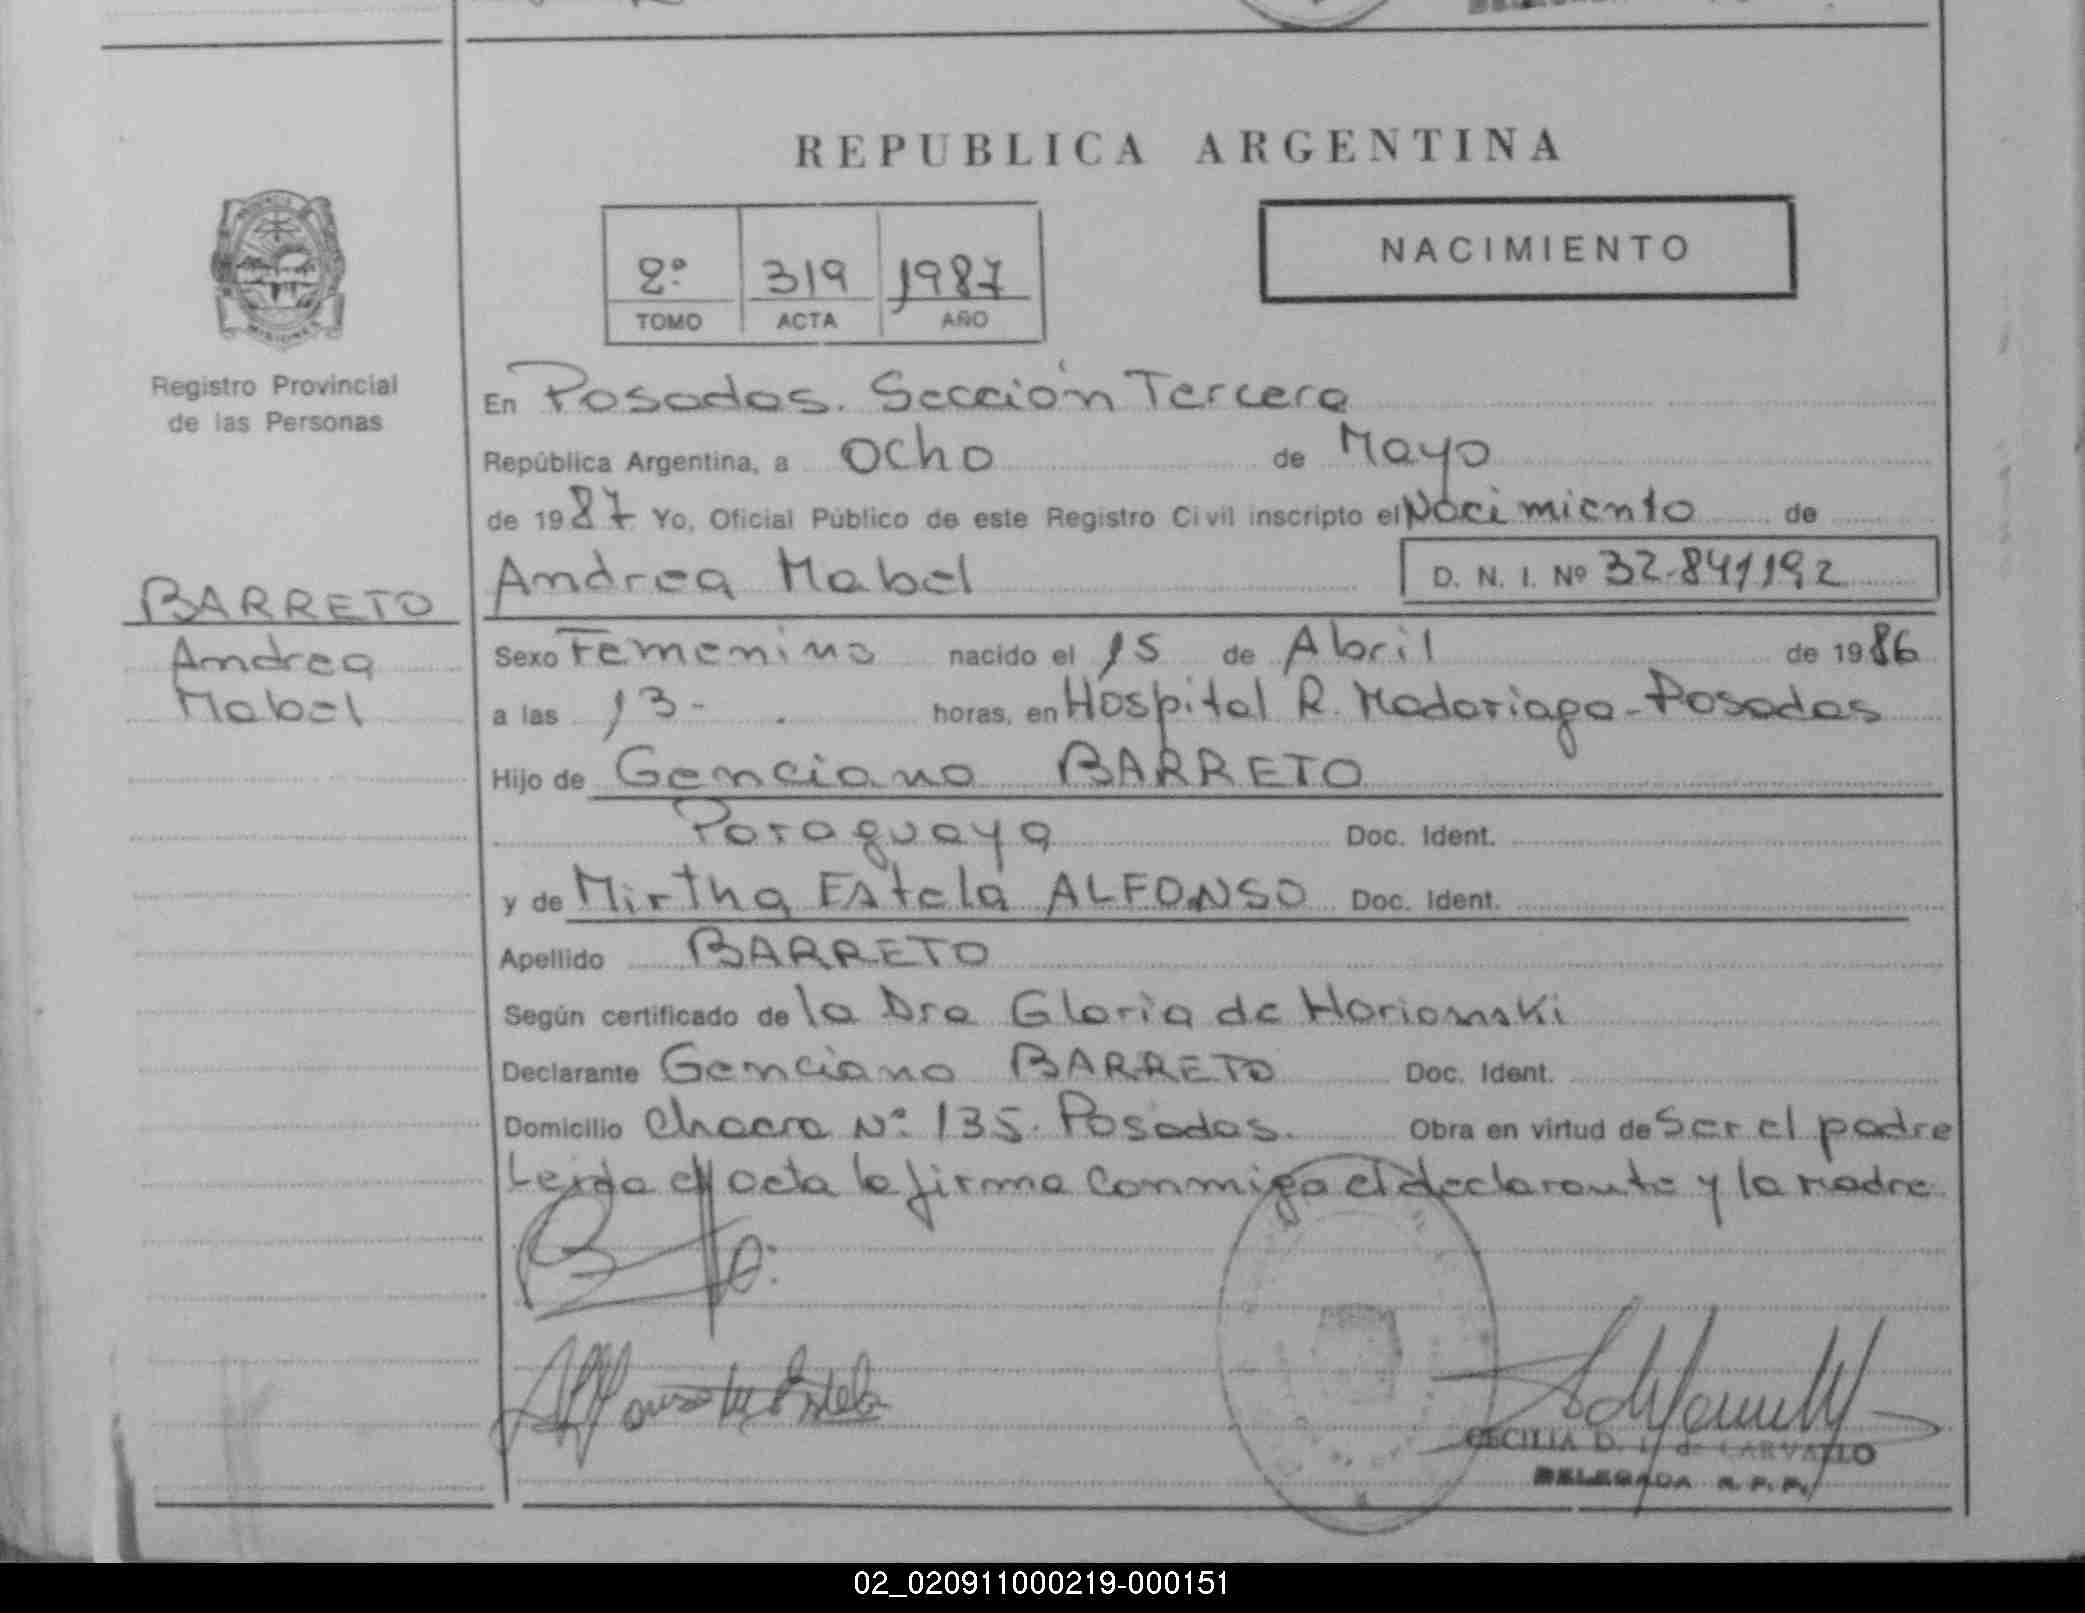 REPUBLICA ARGENTINA
2º 319 1987
TOMO ACTA AÑO
NACIMIENTO
Registro Provincial
de las Personas
BARRETO
Andrea
Mabel
En Posadas. Sección Tercera
República Argentina, a Ocho de Mayo
de 1987 Yo, Oficial Público de este Registro Civil inscripto el Nacimiento de
Andrea Mabel D. N. I. Nº 32.841192
Sexo Femenino nacido el 15 de Abril de 1986
a las 13- horas, en Hospital R. Madariaga - Posadas
Hijo de Genciano BARRETO
Paraguaya Doc. Ident.
y de Mirtha EStela ALFONSO Doc. Ident.
Apellido BARRETO
Según certificado de la Dra Gloria de
Declarante Genciano BARRETO Doc. Ident.
Domicilio Chacra Nº 135. Posadas. Obra en virtud de Ser el padre
Leida el acta la firma conmigo el declarante y la Madre
CECILIA D. de CARVALLO
DELEGADA R. P. P.
02_020911000219-000151